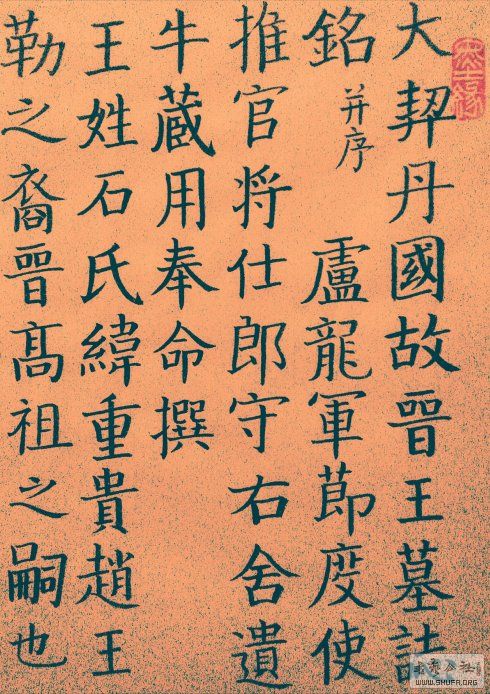 大契丹國故晉王墓誌
銘 并序 盧龍軍莭度使
推官将仕郎守右舍遺
牛蔵用奉命撰
王姓石氏緯重貴趙王
勒之裔晉髙祖之嗣也
WWW.SHUFA.ORG